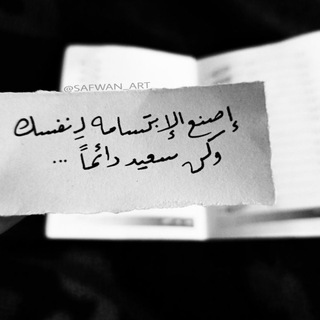 @SAFWAN_ART
إصنع الإبتسامه لِنفسك
وكن سعيد دائماً ...